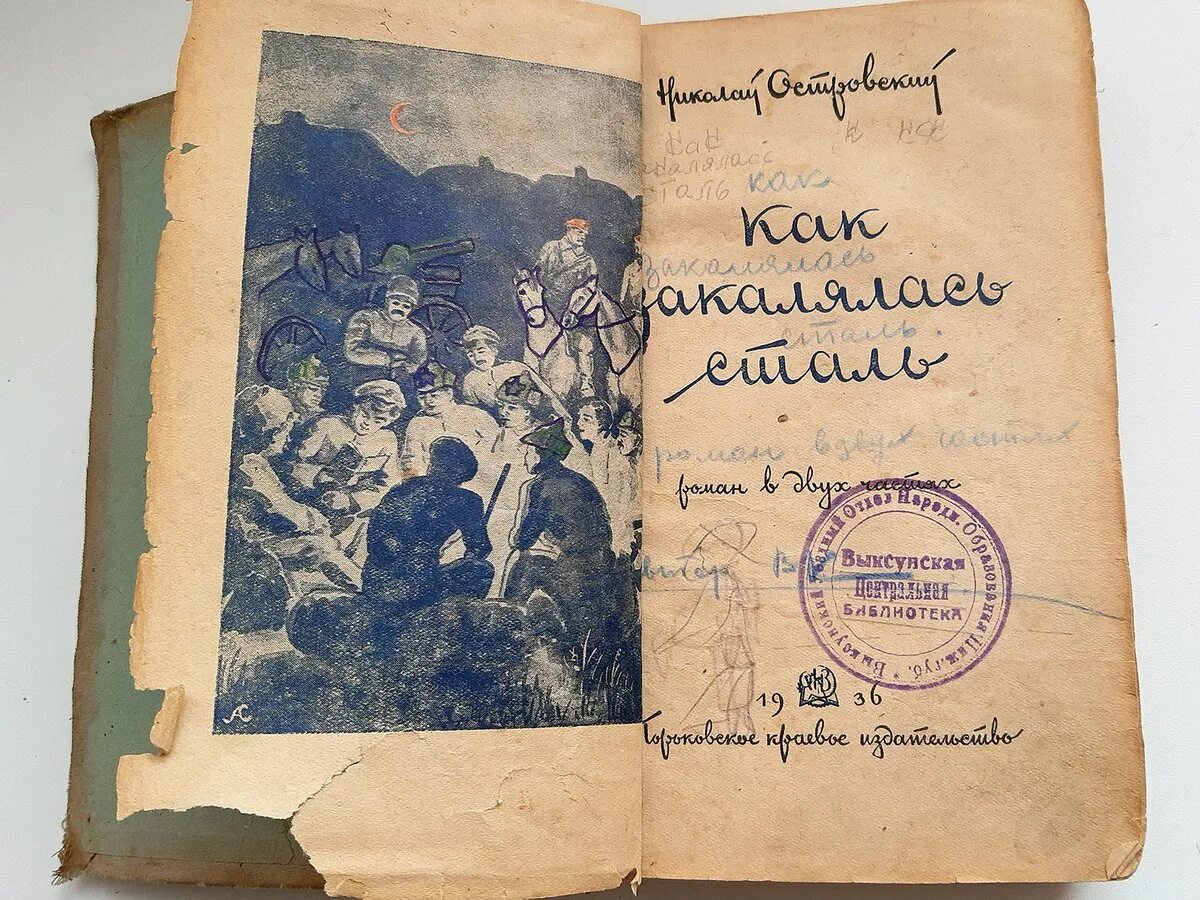 АС
Николай Островский
как
закалялась
сталь
как
как
закалялась
закалялась
сталь.
сталь
роман в двух частях
роман в двух частях
Выксунский Уездный Отдел Народн. Образования Ниж. губ. *
Выксунская
Центральная
БИБЛИОТЕКА
19 36
Горьковское краевое издательство